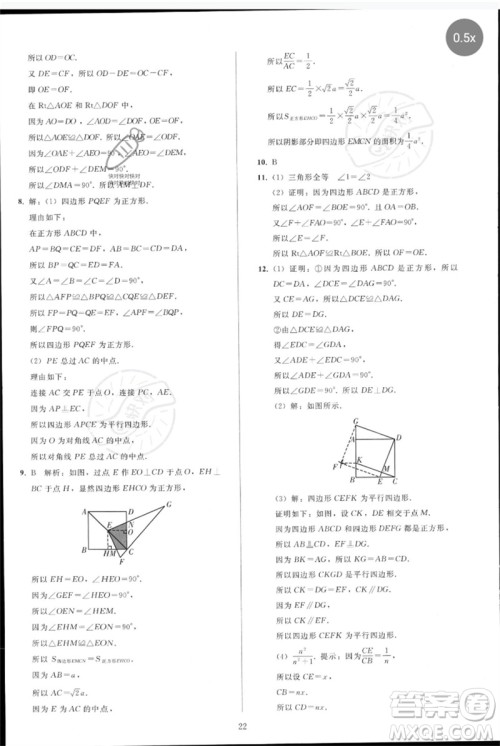 0.5x
所以 OD=OC.
又 DE=CF，所以 OD-DE=OC-CF，
即 OE=OF.
在 Rt△AOE 和 Rt△DOF 中，
因为 AO=DO，∠AOD=∠DOF，
所以△AOE≌△DOF.
所以∠OAE=∠ODF.
所以∠DMA=90°.
快对快对快对
8. 解：(1) 四边形 PQEF 为正方形.
理由如下：
在正方形 ABCD 中，
AP=BQ=CE=DF，AB=BC=CD=AD，
所以 BP=QC=ED=AF.
又∠A=∠B=∠C=∠D=90°，
所以△AFP≌△BPQ≌△CQE≌△DEF.
则∠FPQ=90°.
所以四边形 PQEF 为正方形.
(2) PE 总过 AC 的中点.
理由如下：
连接 AC 交 PE 于点 O，连接 PC，AE.
因为 AP⊥CE，
所以四边形 APCE 为平行四边形.
因为 O 为对角线 AC 的中点，
所以 PE 总过 AC 的中点.
9. B 解析：如图，过点 E 作 EO⊥CD 于点 O，EH⊥
BC 于点 H，显然四边形 EHCO 为正方形.
A D G E N O B HM C F
所以 EH=EO，∠HEO=90°.
因为∠GEF=∠HEO=90°，
所以∠OEN=∠HEM.
所以△EHM≌△EON.
所以 S四边形EMCN=S正方形EHCO.
因为 AB=a，
所以 AC=√2a.
所以 EC/AC=1/2.
所以 EH=1/2×√2/2×√2a=1/2a.
所以 S正方形EHCO=1/2a×1/2a=1/4a².
所以阴影部分即四边形 EMCN 的面积为1/4a².
10. B
11. (1) 三角形全等 ∠1=∠2
(2) 证明：因为四边形 ABCD 是正方形，
所以∠AOF=∠BOE=90°，且 OA=OB.
又∠E+∠OAF=∠F+∠OAF=90°，
所以∠E=∠F.
所以 Rt△AOF≌Rt△BOE. 所以 OF=OE.
12. (1) 证明：①因为四边形 ABCD 是正方形，所以
DC=DA，∠DCE=∠DAG=90°.
又 CE=AG，
所以△DCE≌△DAG.
所以 DE=DG.
②由△DCE≌△DAG，得
∠EDC=∠GDA.
又∠ADE+∠EDC=90°，
所以∠ADE+∠GDA=90°.
所以 DE⊥DG.
(2) 解：如图所示.
G A D K F B E C
(3) 解：四边形 CEFK 为平行四边形.
证明如下：
因为四边形 ABCD 和四边形 DEFG 都是正方形，
因为 BK=AG，所以 KG=AB.
所以四边形 CKGD 是平行四边形.
所以 CK=DG=EF，CK∥DG.
所以 EF∥DG.
所以 CK∥EF.
所以四边形 CEFK 为平行四边形.
(4) n²/n²+1. 提示：因为CE/CB=1/n，
所以 CB=nx.
所以 CD=nx.
22